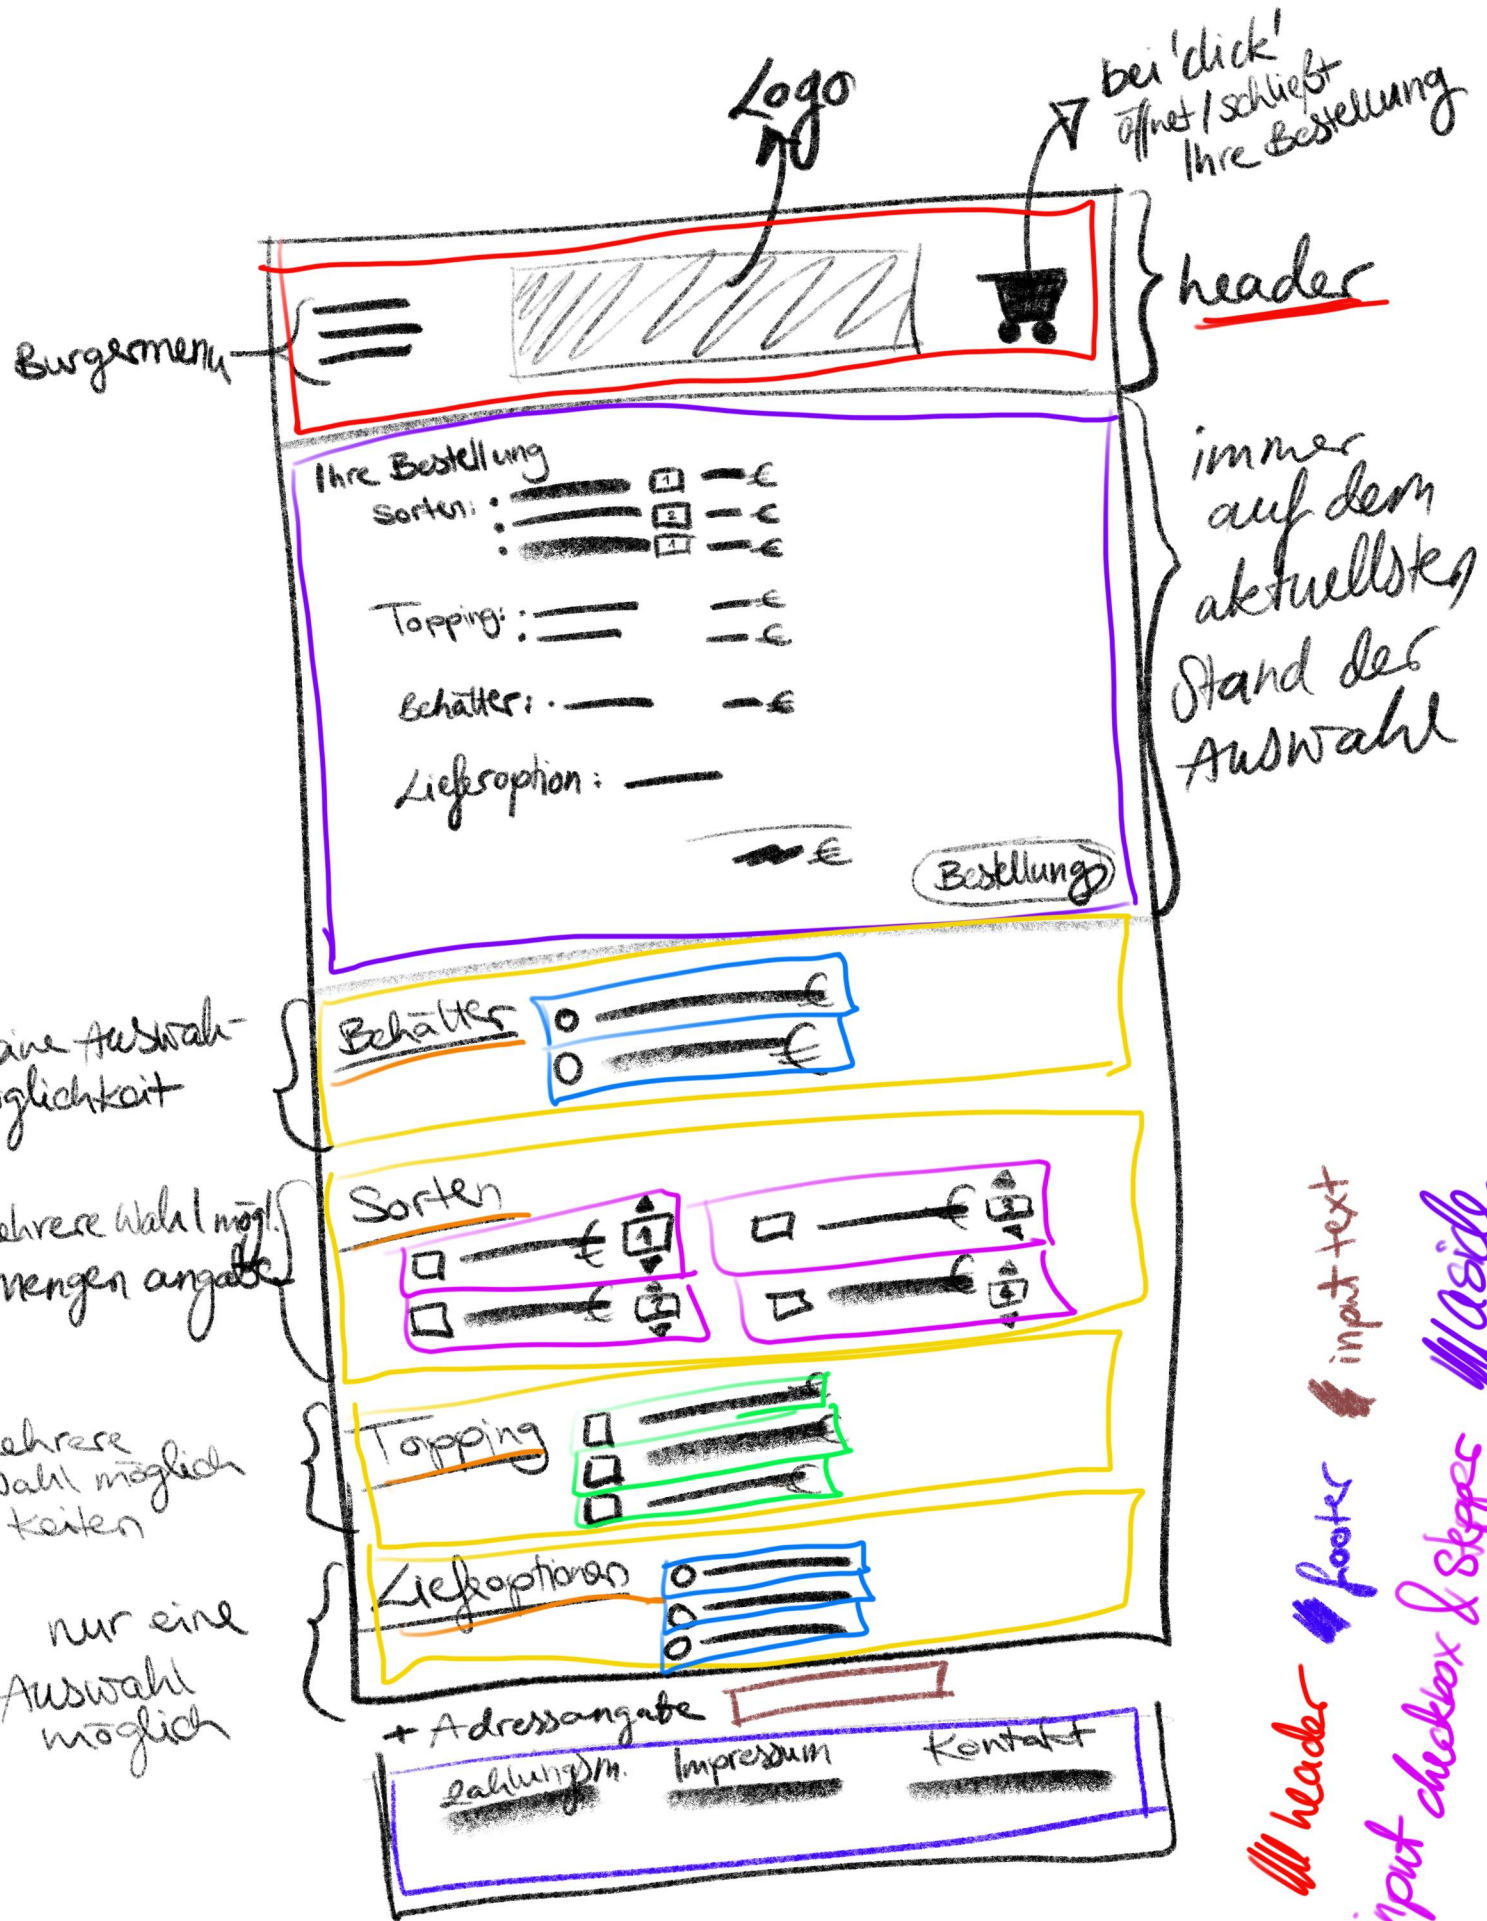 Logo
bei 'click'
öffnet / schließt
Ihre Bestellung
header
Burgermenu
Ihre Bestellung
Sorten:
1
€
2
€
1
€
immer
auf dem
aktuellsten
Stand der
Auswahl
Topping:
€
€
Behälter:
€
Lieferoption:
€
Bestellung
eine Auswahl-
öglichkeit
Behälter
€
€
ehrere Wahl mögl.
mengen angabe
Sorten
€
1
€
3
€
2
€
4
ehrere
Wahl möglich
keiten
Topping
€
€
€
nur eine
Auswahl
möglich
Lieferoptionen
+ Adressangabe
Zahlungsm.
Impressum
Kontakt
header
footer
input text
input checkbox & stepper
aside